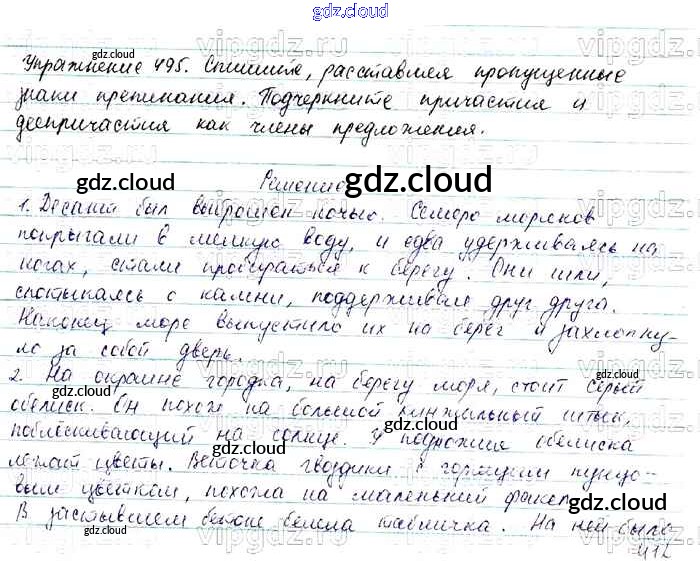 gdz.cloud
Упражнение 495. Спишите, расставляя пропущенные
знаки препинания. Подчеркните причастия и
деепричастия как члены предложения.
Решение
1. Десант был выброшен ночью. Семеро моряков
попрыгали в мелкую воду, и едва удерживаясь на
ногах, стали пробираться к берегу. Они шли,
спотыкаясь о камни, поддерживая друг друга.
Наконец море выпустило их на берег и захлопну-
ло за собой дверь.
2. На окраине городка, на берегу моря, стоит серый
обелиск. Он похож на большой кинжальный штык,
поблёскивающий на солнце. У подножия обелиска
лежат цветы. Веточка гвоздики с горящим пунцо-
вым цветком, похожа на маленький факел.
В застывшем бетоне белела табличка. На ней было
412